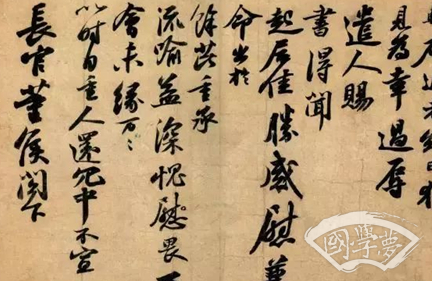 見為幸過辱
遣人賜
書得聞
起居佳勝感慰
命出於
餘芘重承
流喻益深愧慰畏
會未緣万々
以时自重人還冗中不宣
長官董侯閣下
國學夢